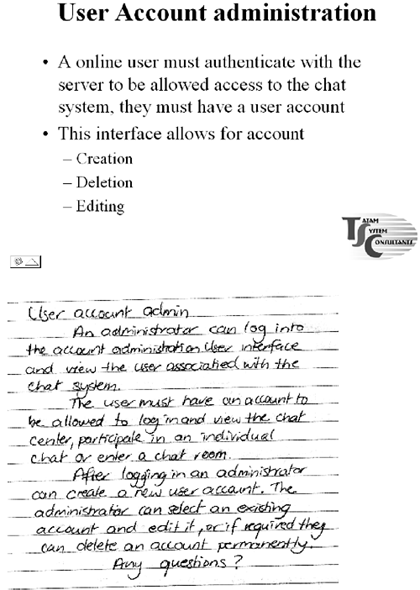 User Account administration
• A online user must authenticate with the
server to be allowed access to the chat
system, they must have a user account
• This interface allows for account
– Creation
– Deletion
– Editing
TATAM
SYSTEM
CONSULTANTS
User account admin
An administrator can log into
the account administration User interface
and view the user associatied with the
chat system.
The user must have an account to
be allowed to log in and view the chat
center, participate in an individual
chat or enter a chat room.
After logging in an administrator
can create a new user account. The
administrator can select an existing
account and edit it, or if required they
can delete an account permanently.
Any questions?